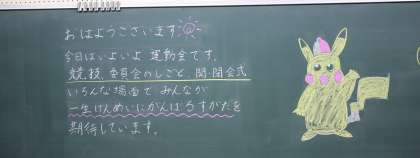 おはようございます
今日はいよいよ運動会です。
競技、委員会のしごと、開閉会式
いろんな場面で みんなが
一生けんめいにがんばるすがたを
期待しています。